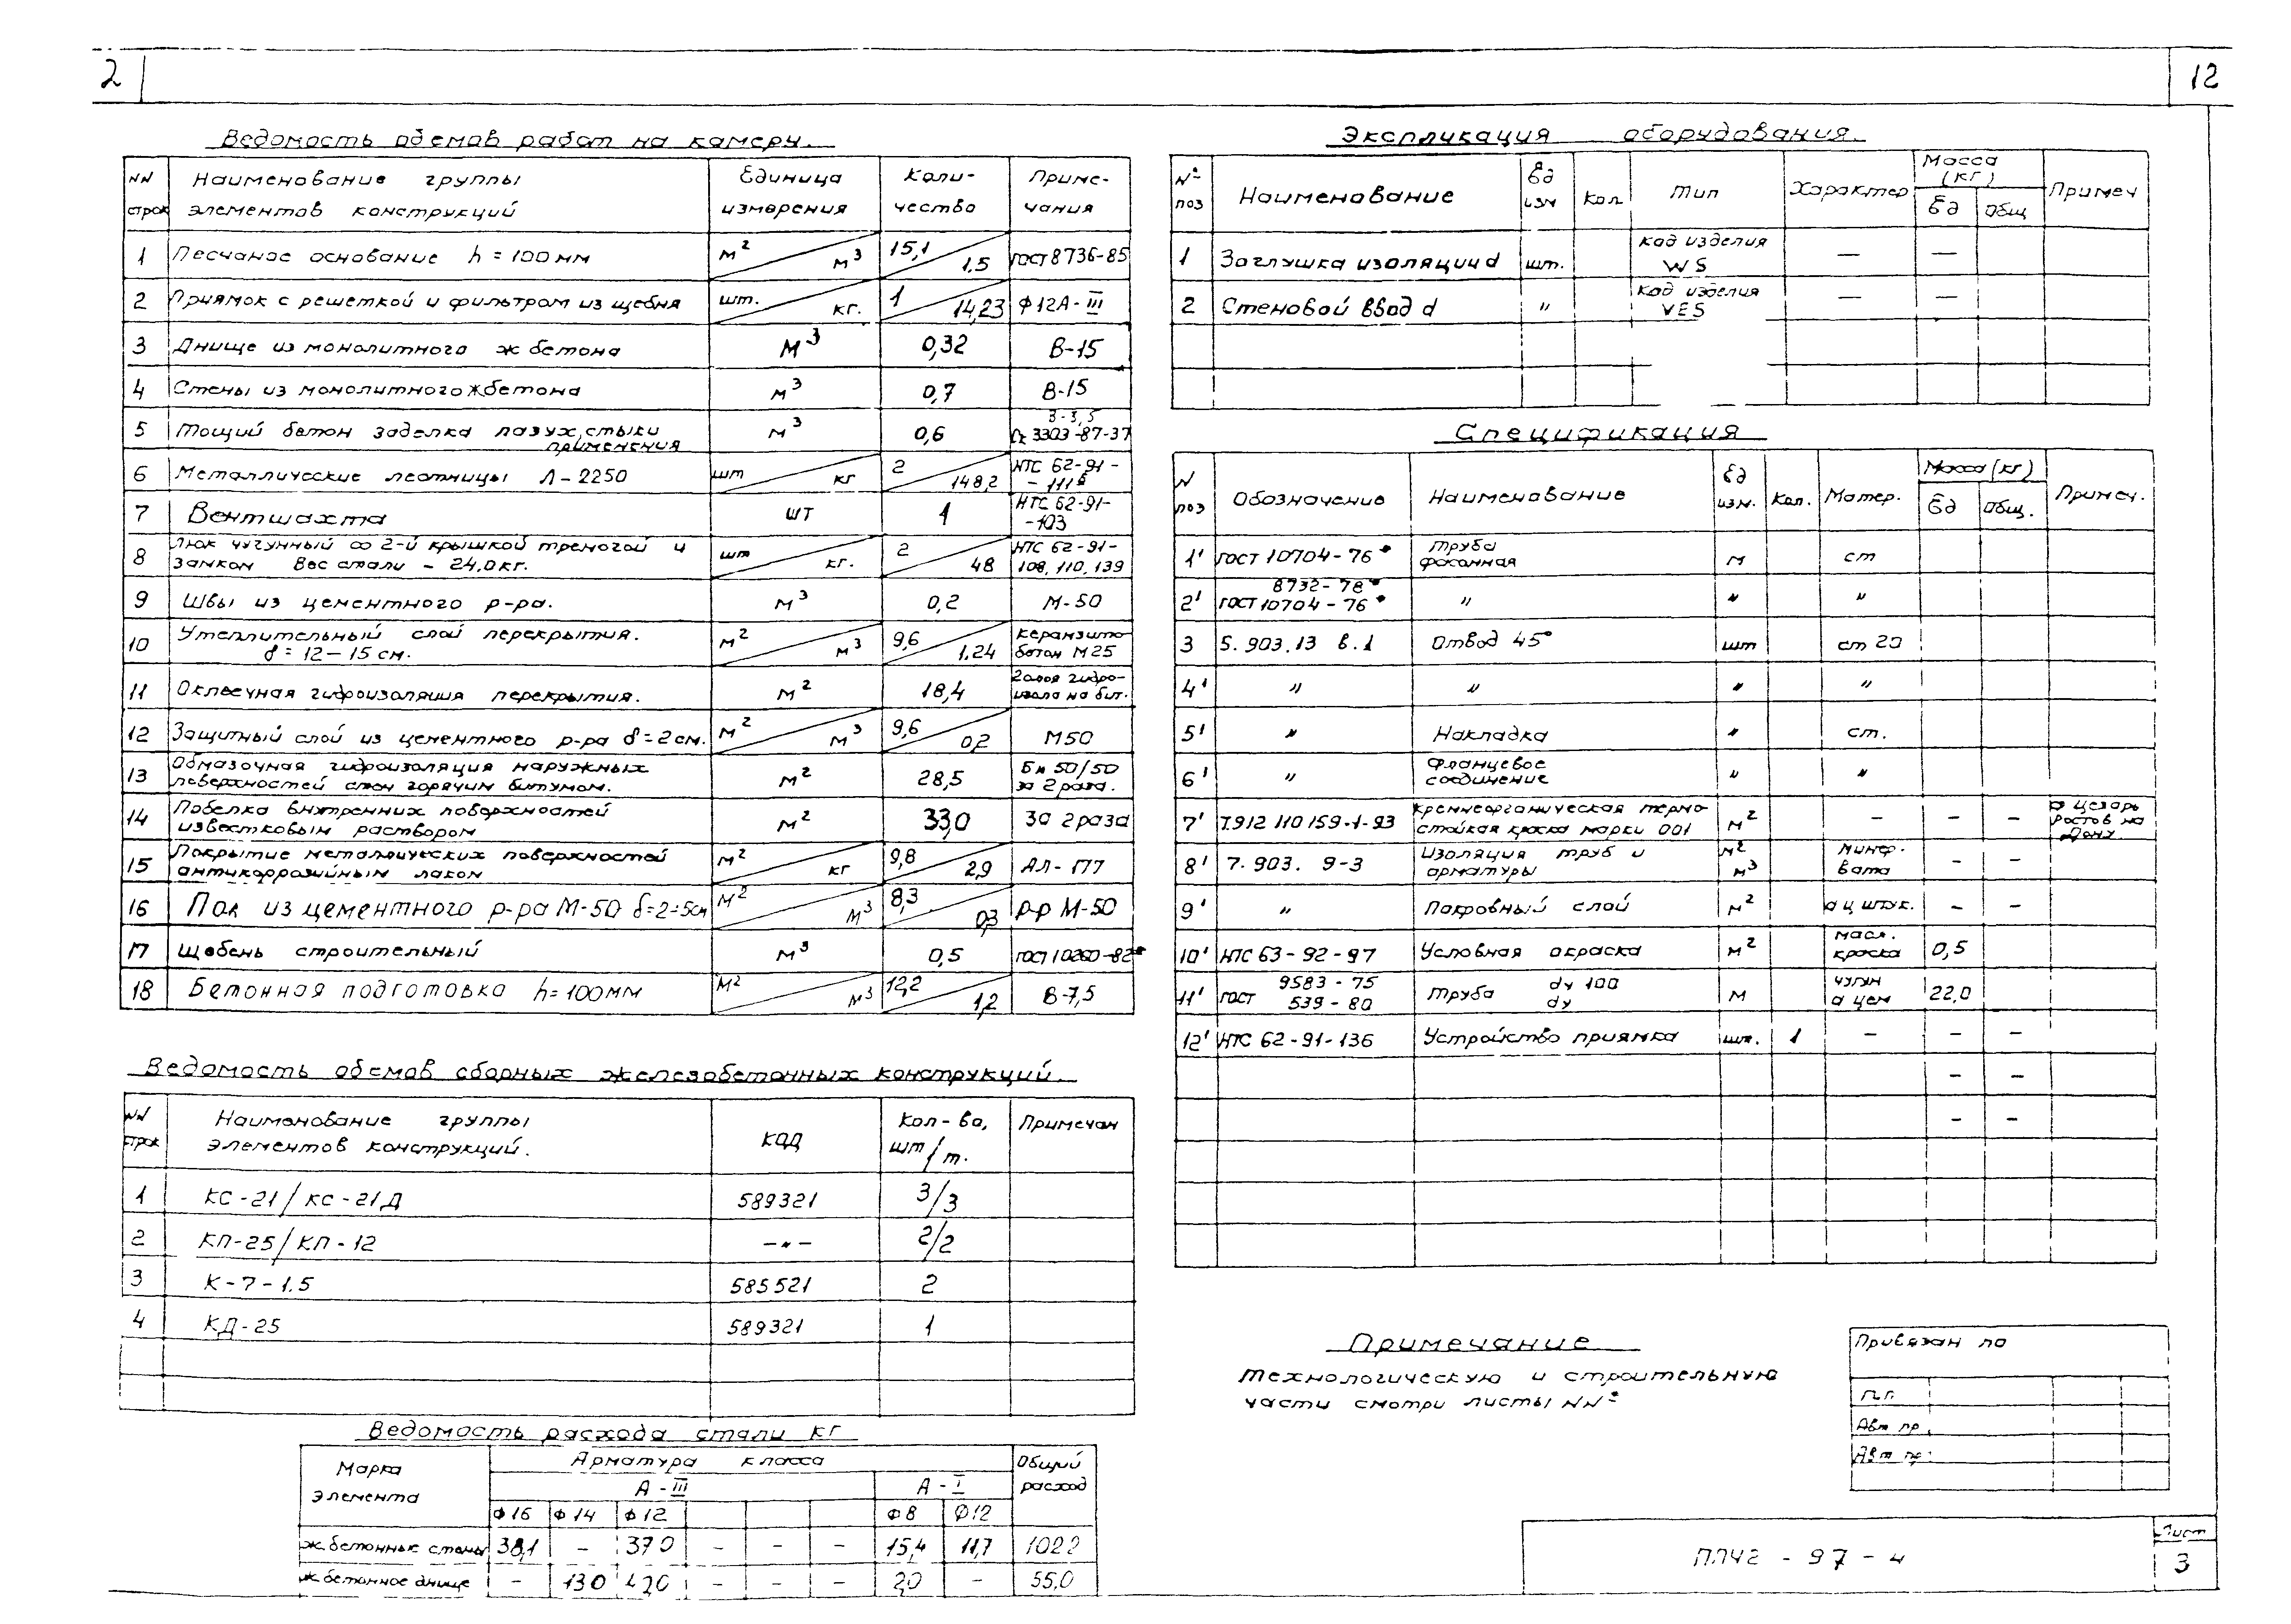 2
12
Ведомость обемов работ на камеру.
NN строк
Наименование группы элементов конструкций
Единица измерения
Коли-чество
Приме-чания
1 Песчаное основание h = 100 мм м² м³ 15,1 1,5 ГОСТ 8736-85
2 Приямок с решеткой и фильтром из щебня шт. кг. 1 14,23 Ф12А-III
3 Днище из монолитного ж бетона м³ 0,32 В-15
4 Стены из монолитного жбетона м³ 0,7 В-15
5 Тощий бетон заделка пазух, стыки применения м³ 0,6 В-3,5 3303-87-37
6 Металлические лестницы Л-2250 шт кг 2 148,2 НТС 62-91-
7 Вентшахта шт 1 НТС 62-91-103
8 Люк чугунный со 2-й крышкой треногой и замком Вес стали - 24,0кг. шт кг. 2 48 НТС 62-91-108, 110, 139
9 Швы из цементного р-ра. м³ 0,2 М-50
10 Утеплительный слой перекрытия. δ = 12-15 см. м² м³ 9,6 1.24 Керамзито-бетон М25
11 Оклеечная гидроизоляция перекрытия. м² 18,4 2 слоя гидро-изола на бит.
12 Защитный слой из цементного р-ра δ=2см. м² м³ 9,6 0,2 М50
13 Обмазочная гидроизоляция наружных поверхностей стен горячим битумом. м² 28,5 Бн 50/50 за 2 раза.
14 Побелка внутренних поверхностей известковым раствором м² 33,0 За 2 раза
15 Покрытие металлических поверхностей антикоррозийным лаком м² кг 9,8 2,9 АЛ-177
16 Пол из цементного р-ра М-50 δ=2÷5см м² м³ 8,3 0,3 р-р М-50
17 Щебень строительный м³ 0,5 ГОСТ 10260-82*
18 Бетонная подготовка h=100мм м² м³ 12,2 1,2 В-7,5
Ведомость обемов сборных железобетонных конструкций.
NN строк
Наименование группы элементов конструкций.
код
Кол-во, шт/т.
Примечан
1 КС-21/КС-21Д 589321 3/3
2 КП-25/КП-12 -"- 2/2
3 К-7-1.5 585521 2
4 КД-25 589321 1
Ведомость расхода стали кг
Марка элемента
Арматура класса
Общий расход
А-III
А-I
Ф16 Ф14 Ф12 Ф8 Ф12
ж.бетонные стены 38,1 - 37,0 - - - 15,4 11,7 102,2
ж бетонное днище - 13,0 - - - 2,0 - 55,0
Экспликация оборудования.
№ поз
Наименование
Ед изм
Кол
Тип
Характер
Масса (кг)
Ед
Общ
Примеч
1 Заглушка изоляции d шт. Код изделия WS — —
2 Стеновой ввод d " Код изделия VES — —
Спецификация
N поз
Обозначение
Наименование
Ед изм.
Кол.
Матер.
Масса (кг)
Ед
Общ.
Примеч.
1' ГОСТ 10704-76* Труба фасонная м ст
2' 8732-78* ГОСТ 10704-76* " " "
3 5.903.13 в.1 Отвод 45° шт ст 20
4' " " " "
5' " Накладка " ст.
6' " Фланцевое соединение " "
7' 7.912 110 159-1-93 Кремнеорганическая термо-стойкая краска марки 001 м² - - - Ростов на Дону
8' 7.903. 9-3 Изоляция труб и арматуры м² м³ минер. вата - -
9' " Покровный слой м² а ц штук. - -
10' НТС 63-92-97 Условная окраска м² масл. краска 0,5
11' ГОСТ 9583-75 539-80 Труба dу 100 dу м чугун а цем 22,0
12' НТС 62-91-136 Устройство приямка шт. 1 - - -
- -
- -
Примечание
Технологическую и строительную
части смотри листы NN°
Привязан по
Авт пр.
Авт пр.
ППЧ2-97-4
Лист
3